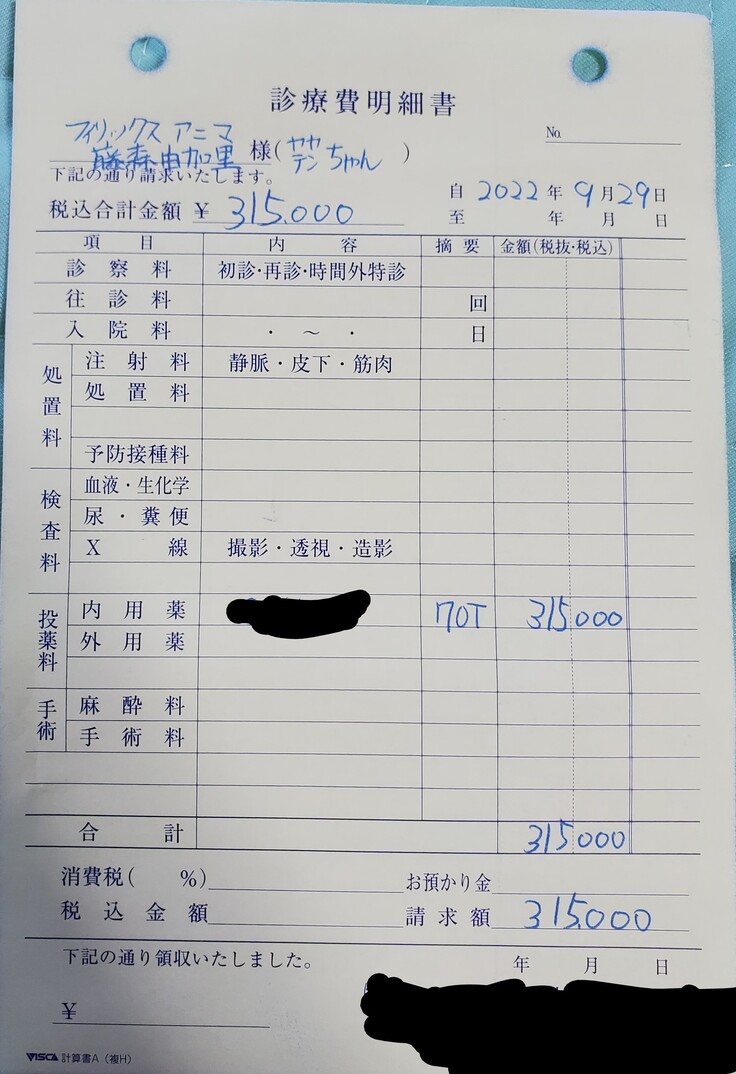 診療費明細書
No.
フィリックス アニマ
藤森由加里 様(ヤヤ テン ちゃん)
下記の通り請求いたします。
自 2022 年 9 月 29 日
税込合計金額 ¥ 315,000
至 年 月 日
項目 内容 摘要 金額(税抜・税込)
診察料 初診・再診・時間外特診
往診料 回
入院料 ・ ~ ・ 日
処置料
注射料 静脈・皮下・筋肉
処置料
予防接種料
検査料
血液・生化学
尿・糞便
X線 撮影・透視・造影
投薬料
内用薬 70T 315000
外用薬
手術
麻酔料
手術料
合計 315000
消費税( %) お預かり金
税込金額 請求額 315,000
下記の通り領収いたしました。 年 月 日
¥
VISCA 計算書A(複H)